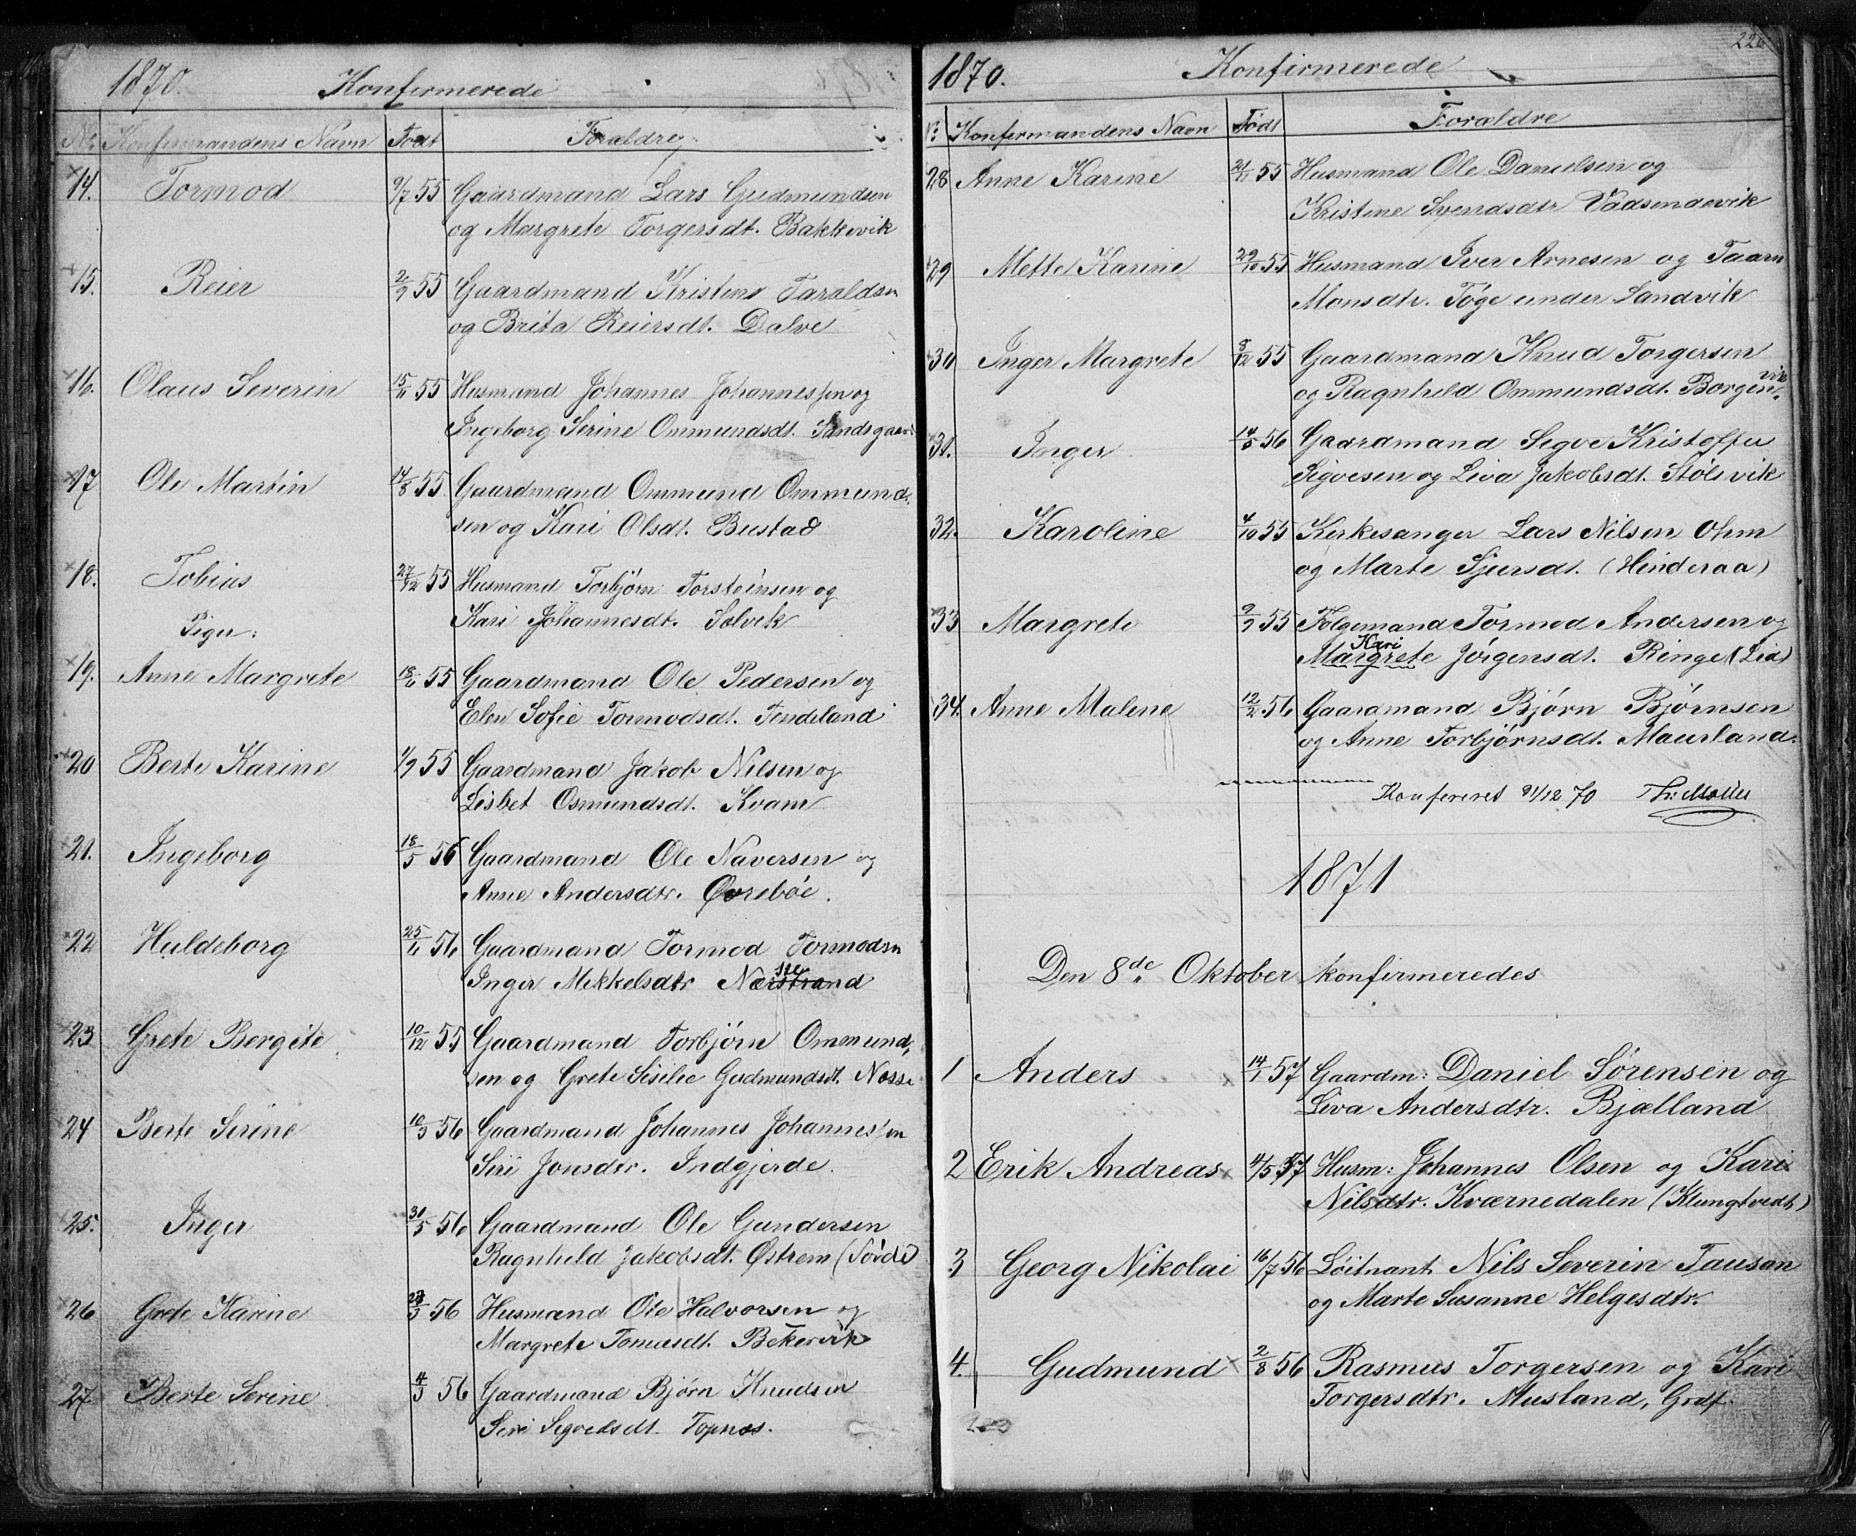 1870. Konfirmerede
No. Konfirmandens Navn Født Forældre
14. Tormod 9/7 55 Gaardmand Lars Gudmundsen
og Margrete Torgersdt. Bakkevik
15. Reier 2/9 55 Gaardmand Kristens Taraldsen
og Brita Reiersdt. Dalve
16. Olaus Severin 15/11 55 Husmand Johannes Johannessen og
Ingeborg Serine Ommundsdt. Sandsgaard
17 Ole Martin 14/8 55 Gaardmand Ommund Ommund,
sen og Kari Olsdt. Bustad
18. Tobias 27/12 55 Husmand Torbjørn Torsteinsen og
Kari Johannesdt. Solvik
Piger:
19. Anne Margrete 18/6 55 Gaardmand Ole Pedersen og
Elen Sofie Tormodsdt. Tendeland
20 Berte Karine 1/9 55 Gaardmand Jakob Nilsen og
Lisbet Osmundsdt. Kvam
21. Ingeborg 18/5 56 Gaardmand Ole Naversen og
Anne Andersdtr. Øvrebøe.
22 Huldeborg 25/4 56 Gaardmand Tormod Tormodsn
Inger Mikkelsdtr Nærstrand
23 Grete Bergite 10/12 55 Gaardmand Torbjørn Ommund,
sen og Grete Sisilie Gudmundsdt. Næsse
24 Berte Serine 10/3 56 Gaardmand Johannes Johannessen
Siri Jonsdtr. Indgjerde.
25. Inger 31/5 56 Gaardmand Ole Gundersen
Ragnhild Jakobsdt. Østrem (Tøvde)
26 Grete Karine 23/3 56 Husmand Ole Halvorsen og
Margrete Tomasdt. Bekkevik
27 Berte Serine 4/3 56 Gaardmand Bjørn Knudsen
Siri Segvelsdt. Topnæs.
1870. Konfirmerede
Konfirmandens Navn Født Forældre
28 Anne Karine 21/11 55 Husmand Ole Danielsen og
Kristine Svendsdtr Vadsendevik
29 Mette Karine 29/10 55 Husmand Iver Arnesen og Taarn
Monsdtr. Tøge under Sandvik
30 Inger Margrete 8/12 55 Gaardmand Knud Torgersen
og Ragnhild Ommundsdt. Borgenvik.
31. Inger 14/5 56 Gaardmand Segve Kristoffer
Sigvesen og Liva Jakobsdt. Stølsvik
32. Karoline 4/10 55 Kirkesanger Lars Nilsen Ohm
og Marte Sjursdt. (Hinderaa)
33 Margrete 9/9 55 Følgemand Tormod Andersen og
Kari
Margrete Jørgensdt. Ringe (Lid)
34. Anne Malene 12/2 56 Gaardmand Bjørn Bjørnsen
og Anne Torbjørnsdt. Maurland.
Konfereret 31/12 70
1871
Den 8de Oktober konfirmeredes
1 Anders 14/1 57 Gaardm: Daniel Sørensen og
Liva Andersdtr. Bjælland
2 Erik Andreas 4/5 57 Husm: Johannes Olsen og Kari
Nilsdtr. Kværnedalen (Klungtvedt)
3 Georg Nikolai 16/7 56 Løitnant Nils Severin Tausan
og Marte Susanne Helgesdtr.
4. Gudmund 2/8 56 Rasmus Torgersen og Kari
Torgersdtr. Musland, Grdf.